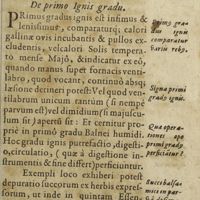 De primo Ignis gradu.
PRimus gradus ignis est infimus &
lenissimus, comparaturq; calori
gallinæ oris incubantis & pullos ex-
cludentis, velcalori Solis tempera-
to mense Majô, & indicatur ex eô,
quando manus super fornacis venti-
labro, quod vocant, continuô absq́;
læsione detineri potest: Vel quod ven-
tilabrum unicum rantùm (si nempe
parvum est) vel dimidium (si majuscu-
lum sit) apertû sit: Et cernitur pro-
priè in primo gradu Balnei humidi.
Hoc gradu ignis purrefactio, digesti-
o, circulatio, (quæ à digestione in-
strumentis & fine differt) perficiuntur.
Exempli loco exhiberi potest
depuratio succorum ex herbis expres-
sorum, ut inde in quintam Essen-
Primo gra-
dus ignis
comparatur
variis rebq.
Signa primi
grady ignis.
Qua opera-
tiones opé
primi grady
perficiatur?
Succi balsa-